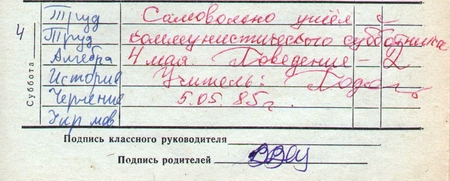 4
Суббота
Труд
Труд
Алгебра
История
Черчение
Укр мов
Самовольно ушёл с
коммунистического субботника
4 мая. Поведение - 2
Учитель:
5.05.85г.
Подпись классного руководителя
Подпись родителей